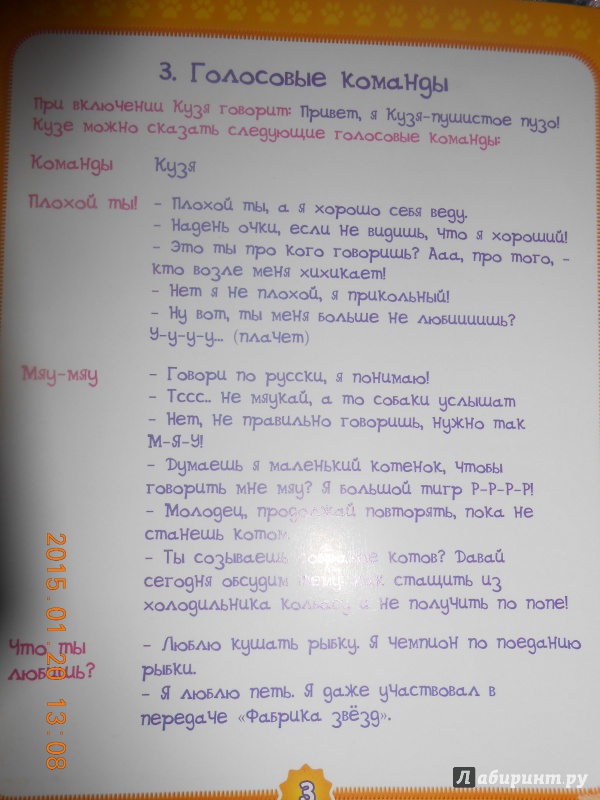 3. Голосовые команды
При включении Кузя говорит: Привет, я Кузя-пушистое пузо!
Кузе можно сказать следующие голосовые команды:
Команды Кузя
Плохой ты! – Плохой ты, а я хорошо себя веду.
– Надень очки, если не видишь, что я хороший!
– Это ты про кого говоришь? Ааа, про того, –
кто возле меня хихикает!
– Нет я не плохой, я прикольный!
– Ну вот, ты меня больше не любиишишь?
У-у-у-у... (плачет)
Мяу-мяу – Говори по русски, я понимаю!
– Тссс.. Не мяукай, а то собаки услышат
– Нет, не правильно говоришь, нужно так
М-Я-У!
– Думаешь я маленький котенок, чтобы
говорить мне мяу? Я большой тигр Р-Р-Р-Р!
– Молодец, продолжай повторять, пока не
станешь котом.
– Ты созываешь собрание котов? Давай
сегодня обсудим тему: как стащить из
холодильника колбасу и не получить по попе!
Что ты – Люблю кушать рыбку. Я чемпион по поеданию
любишь? рыбки.
– Я люблю петь. Я даже участвовал в
передаче «Фабрика звёзд».
3
2015.01.20 13:08
Лабиринт.ру